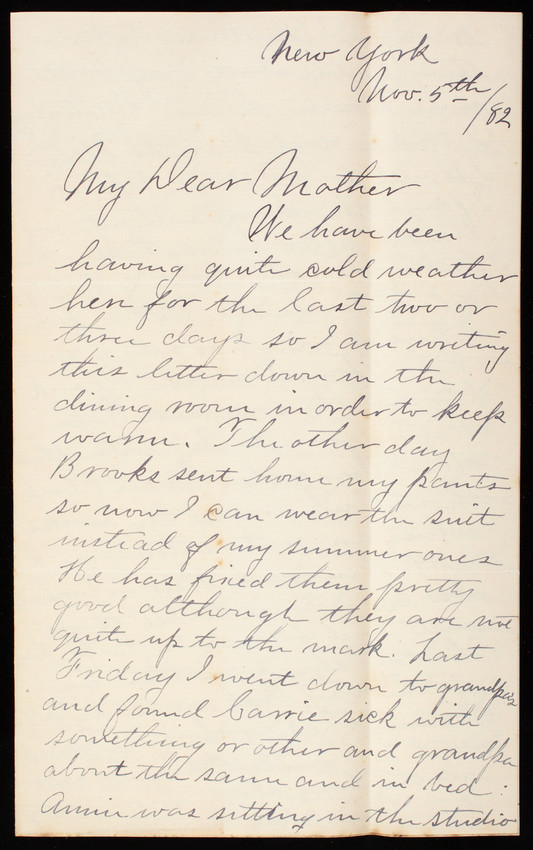 New York
Nov. 5th/82
My Dear Mother
We have been
having quite cold weather
here for the last two or
three days so I am writing
this letter down in the
dining room in order to keep
warm. The other day
Brooks sent home my pants
so now I can wear the suit
instead of my summer ones
He has fixed them pretty
good although they are not
quite up to the mark. Last
Friday I went down to grandpa's
and found Carrie sick with
something or other and grandpa
about the same and in bed:
Annie was sitting in the studio